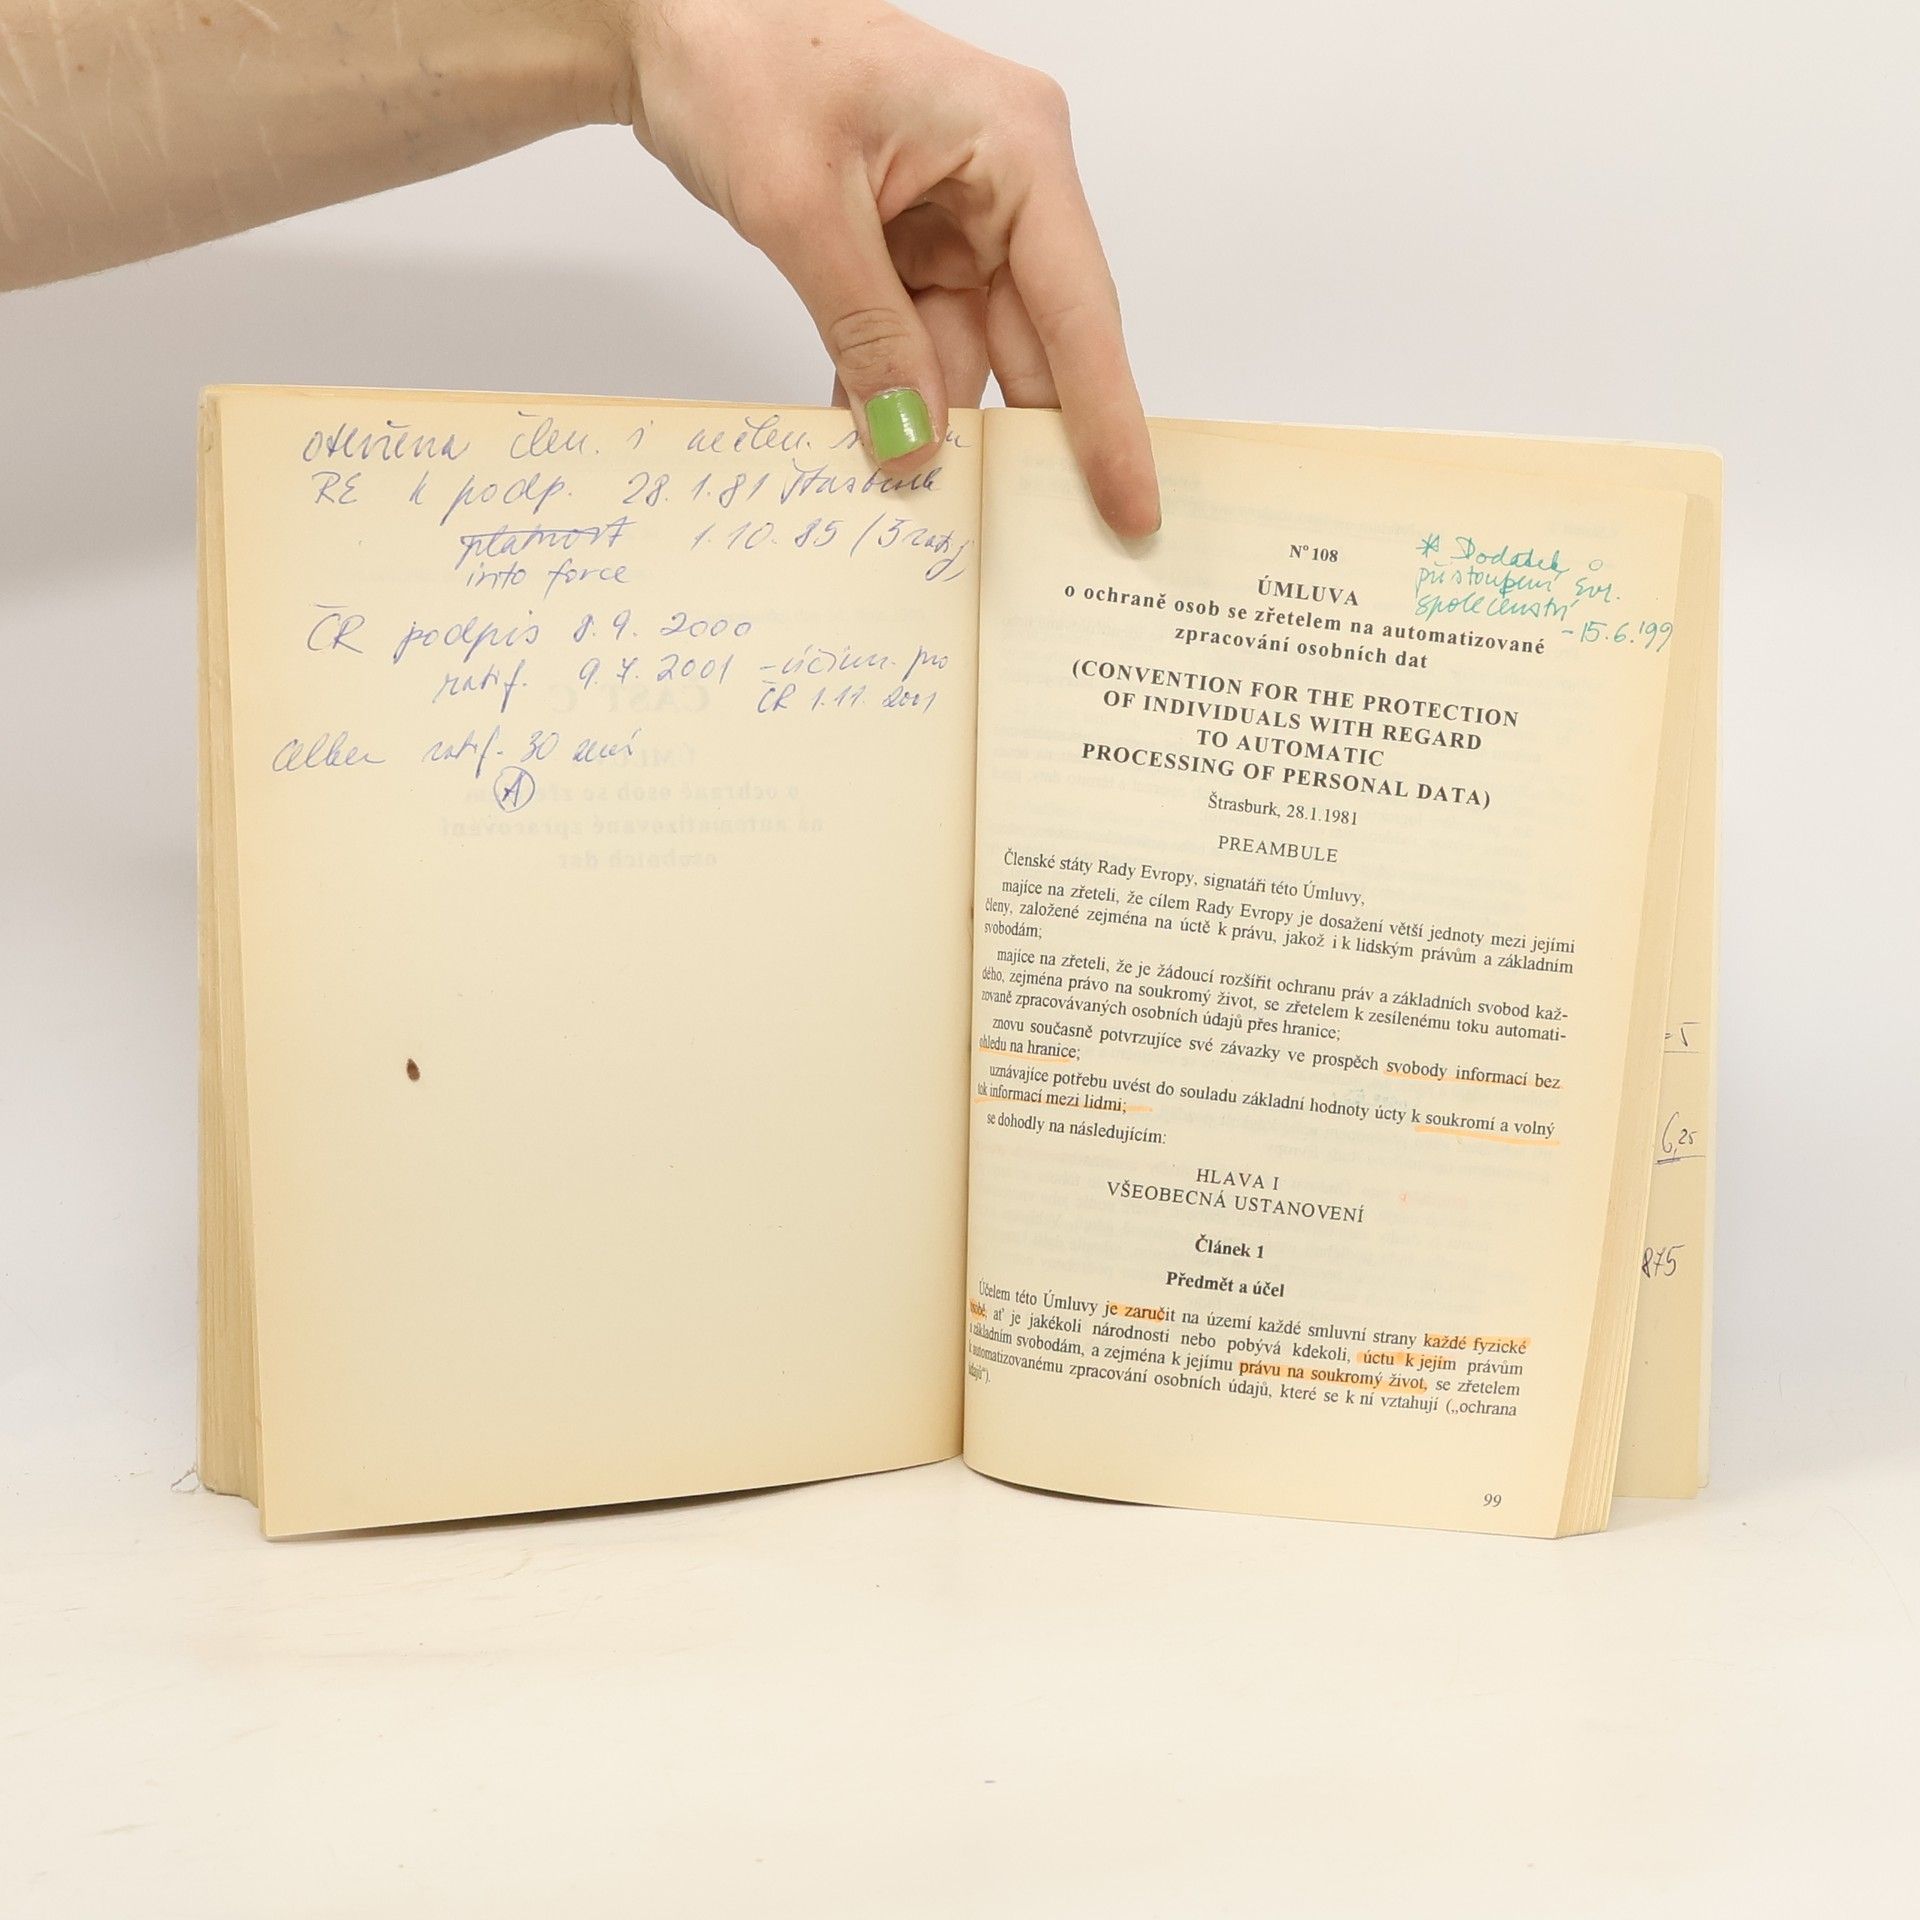 otevřena člen. i nečlen.
RE k podp. 28.1.81 Štrasburk
platnost 1.10.85 (5 ratif)
into force
ČR podpis 8.9.2000
ratif. 9.7.2001 – účinn. pro
ČR 1.11.2001
Celkem ratif. 30 zemí
A
N° 108
* Dodatek o
přistoupení Evr.
společenství
- 15.6.'99
ÚMLUVA
o ochraně osob se zřetelem na automatizované
zpracování osobních dat
(CONVENTION FOR THE PROTECTION
OF INDIVIDUALS WITH REGARD
TO AUTOMATIC
PROCESSING OF PERSONAL DATA)
Štrasburk, 28.1.1981
PREAMBULE
Členské státy Rady Evropy, signatáři této Úmluvy,
majíce na zřeteli, že cílem Rady Evropy je dosažení větší jednoty mezi jejími
členy, založené zejména na úctě k právu, jakož i k lidským právům a základním
svobodám;
majíce na zřeteli, že je žádoucí rozšířit ochranu práv a základních svobod kaž-
dého, zejména právo na soukromý život, se zřetelem k zesílenému toku automati-
zovaně zpracovávaných osobních údajů přes hranice;
znovu současně potvrzujíce své závazky ve prospěch svobody informací bez
ohledu na hranice;
uznávajíce potřebu uvést do souladu základní hodnoty úcty k soukromí a volný
tok informací mezi lidmi;
se dohodly na následujícím:
HLAVA I
VŠEOBECNÁ USTANOVENÍ
Článek 1
Předmět a účel
Účelem této Úmluvy je zaručit na území každé smluvní strany každé fyzické
osobě, ať je jakékoli národnosti nebo pobývá kdekoli, úctu k jejím právům
a základním svobodám, a zejména k jejímu právu na soukromý život, se zřetelem
k automatizovanému zpracování osobních údajů, které se k ní vztahují („ochrana
údajů“).
99
= 5
6,25
875